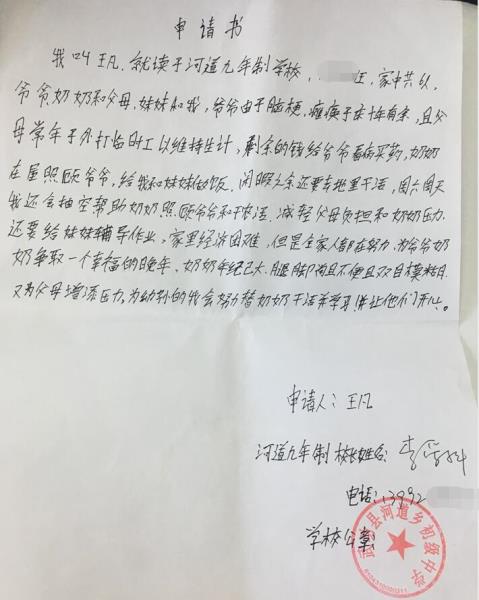 申请书
我叫王凡,就读于河道九年制学校,
家中共6人,
爷爷奶奶和父母,妹妹和我,爷爷由于脑梗,瘫痪于床十年有余,且父
母常年于外打临时工以维持生计,剩余的钱给爷爷看病买药,奶奶
在屋照顾爷爷,给我和妹妹做饭,闲暇之余还要去地里干活,周六周天
我还会抽空帮助奶奶照顾爷爷和干农活,减轻父母负担和奶奶压力
还要给妹妹辅导作业,家里经济困难,但是全家人都在努力,为爷爷奶
奶争取一个幸福的晚年,奶奶年纪已大,腿脚不便且双目模糊,
又为父母增添压力,为幼孙的我会努力替奶奶干活并学习,并让他们开心。
申请人:王凡
河道九年制 校长姓名:李
电话:13992
学校公章:
县河道乡初级中学